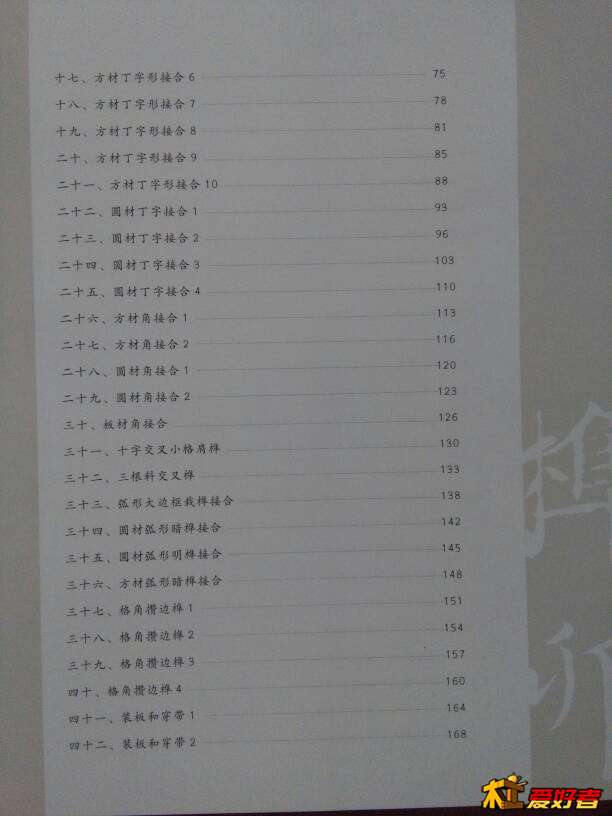 十七、方材丁字形接合6 75
十八、方材丁字形接合7 78
十九、方材丁字形接合8 81
二十、方材丁字形接合9 85
二十一、方材丁字形接合10 88
二十二、圆材丁字接合1 93
二十三、圆材丁字接合2 96
二十四、圆材丁字接合3 103
二十五、圆材丁字接合4 110
二十六、方材角接合1 113
二十七、方材角接合2 116
二十八、圆材角接合1 120
二十九、圆材角接合2 123
三十、板材角接合 126
三十一、十字交叉小格肩榫 130
三十二、三根料交叉榫 133
三十三、弧形大边框栽榫接合 138
三十四、圆材弧形暗榫接合 142
三十五、圆材弧形明榫接合 145
三十六、方材弧形暗榫接合 148
三十七、格角攒边榫1 151
三十八、格角攒边榫2 154
三十九、格角攒边榫3 157
四十、格角攒边榫4 160
四十一、装板和穿带1 164
四十二、装板和穿带2 168
榫
卯
木工爱好者